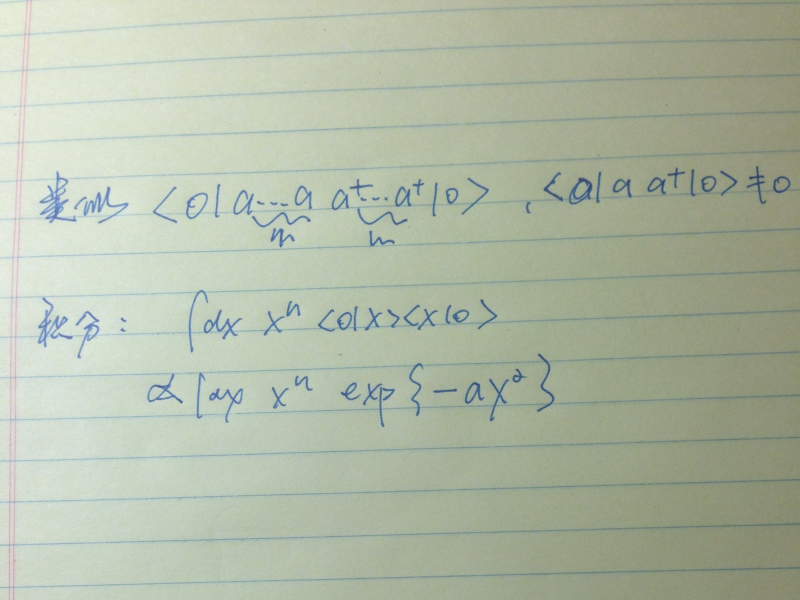 类似 <0|a...a a⁺...a⁺|0> , <0|a a⁺|0>≠0
n m
积分: ∫dx xⁿ <0|x><x|0>
∝∫dx xⁿ exp{-ax²}